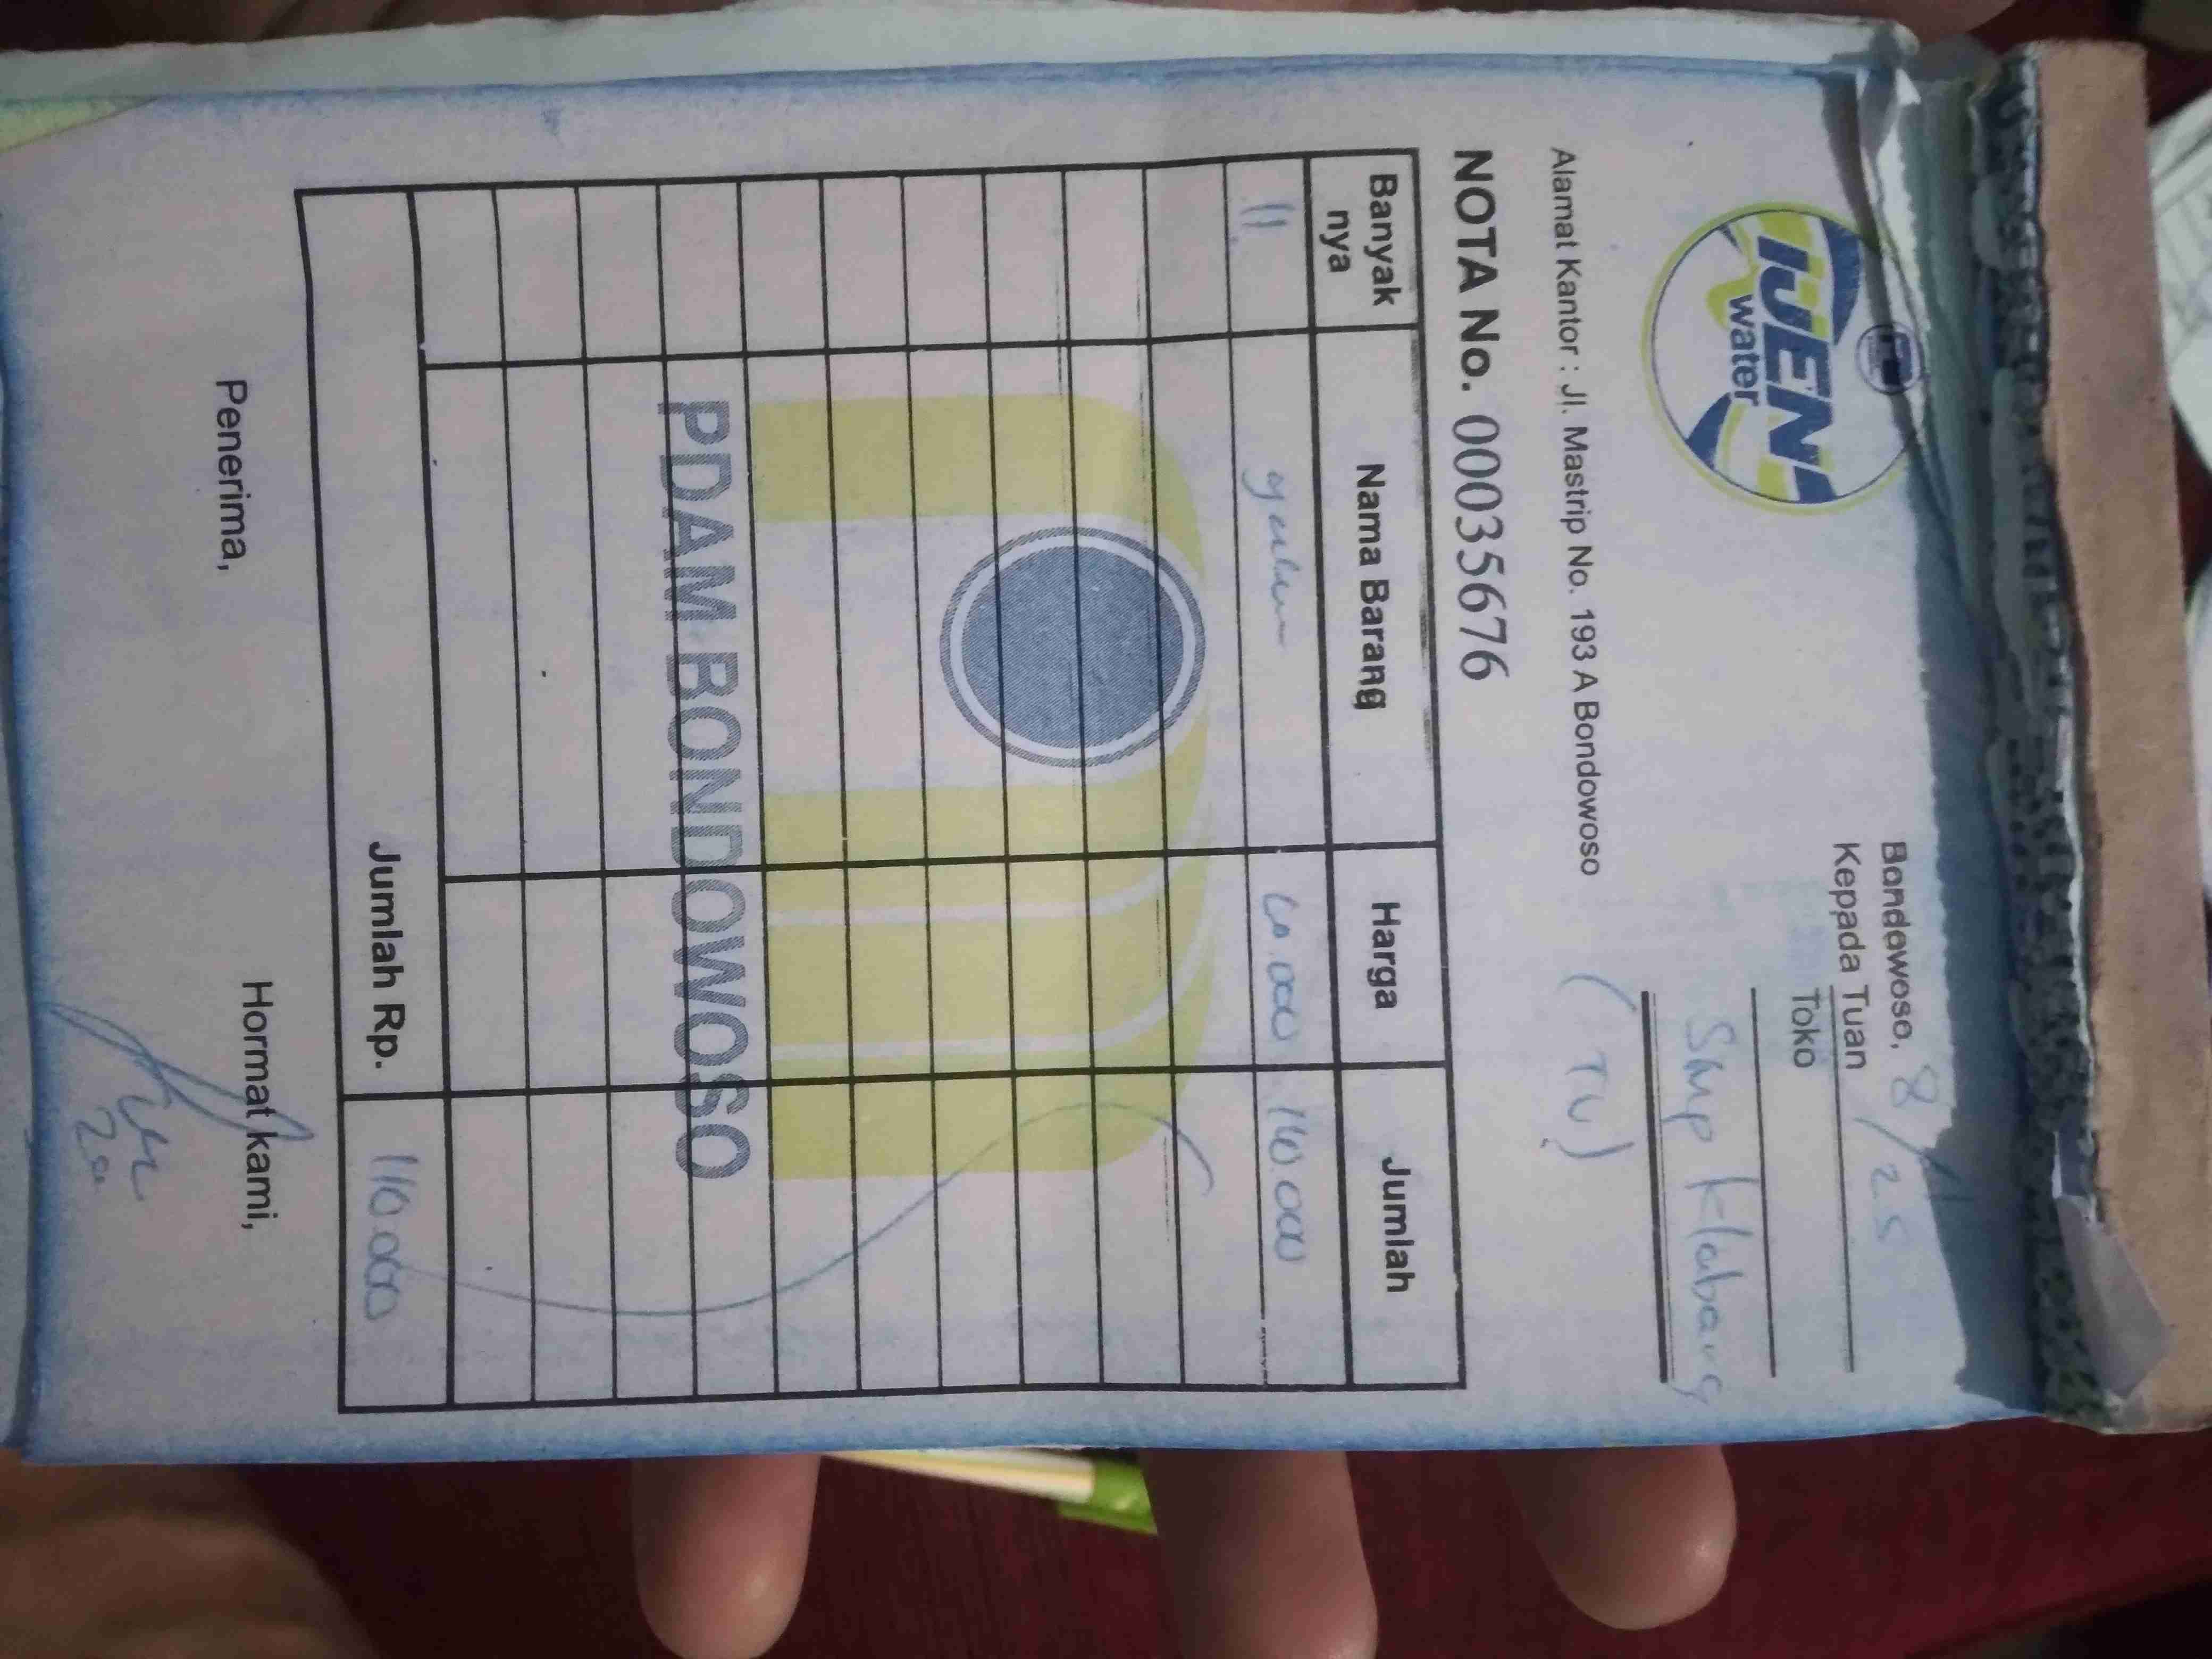 IJEN
water
Bondowoso, 8/11 25
Kepada Tuan
Toko
Smp Klabang
(TU)
Alamat Kantor : Jl. Mastrip No. 193 A Bondowoso
NOTA No. 00035676
Banyak nya Nama Barang Harga Jumlah
11 galon 10.000 110.000
PDAM BONDOWOSO
Jumlah Rp. 110.000
Penerima, Hormat kami,